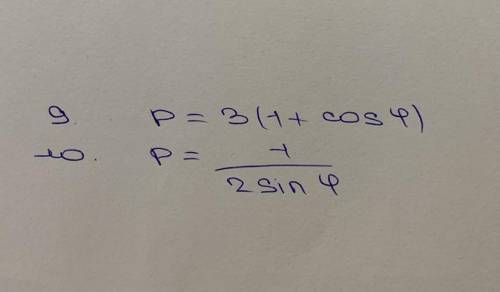 9. P = 3(1 + cos φ)
10. P = 1 / 2 sin φ